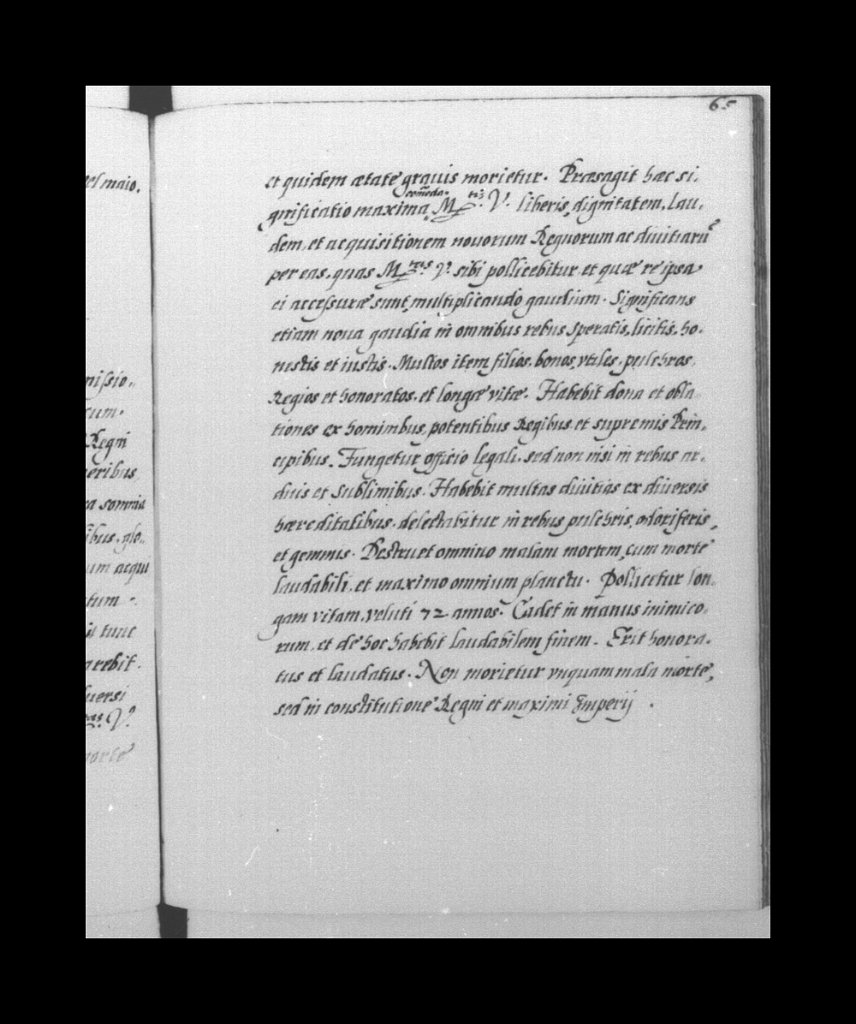 65
et quidem ætate grauis morietur. Præsagit hæc si,
gnificatio maxima comoda M.tis V. liberis, dignitatem, lau-
dem, et acquisitionem nouorum Regnorum ac diuitiarū
per eas, quas M.tas V. sibi pollicebitur et quæ re ipsa
ei accessuræ sunt, multiplicando gaudium. Significans
etiam noua gaudia in omnibus rebus speratis, licitis, ho-
nestis et iustis. Multos item filios, bonos, vtiles, pulchros,
Regios et honoratos, et longæ vitæ. Habebit dona et obla
tiones ex hominibus, potentibus Regibus et supremis Prin-
cipibus. Fungetur officio legali, sed non nisi in rebus ar-
duis et sublimibus. Habebit multas diuitias ex diuersis
hæreditatibus, delectabitur in rebus pulchris, odoriferis,
et gemmis. Destruet omnino malam mortem, cum morte
laudabili, et maximo omnium planctu. Pollicetur lon-
gam vitam, veluti 72 annos. Cadet in manus inimico-
rum, et de hoc habebit laudabilem finem. Erit honora-
tus et laudatus. Non morietur vnquam mala morte,
sed in constitutione Regni et maximi Imperij.
el maio.
nissio-
cum.
Regni
eribus
a somnia
ibus, glo-
um acqui
tum.
tunc
arebit.
uersi
tas V.
morte